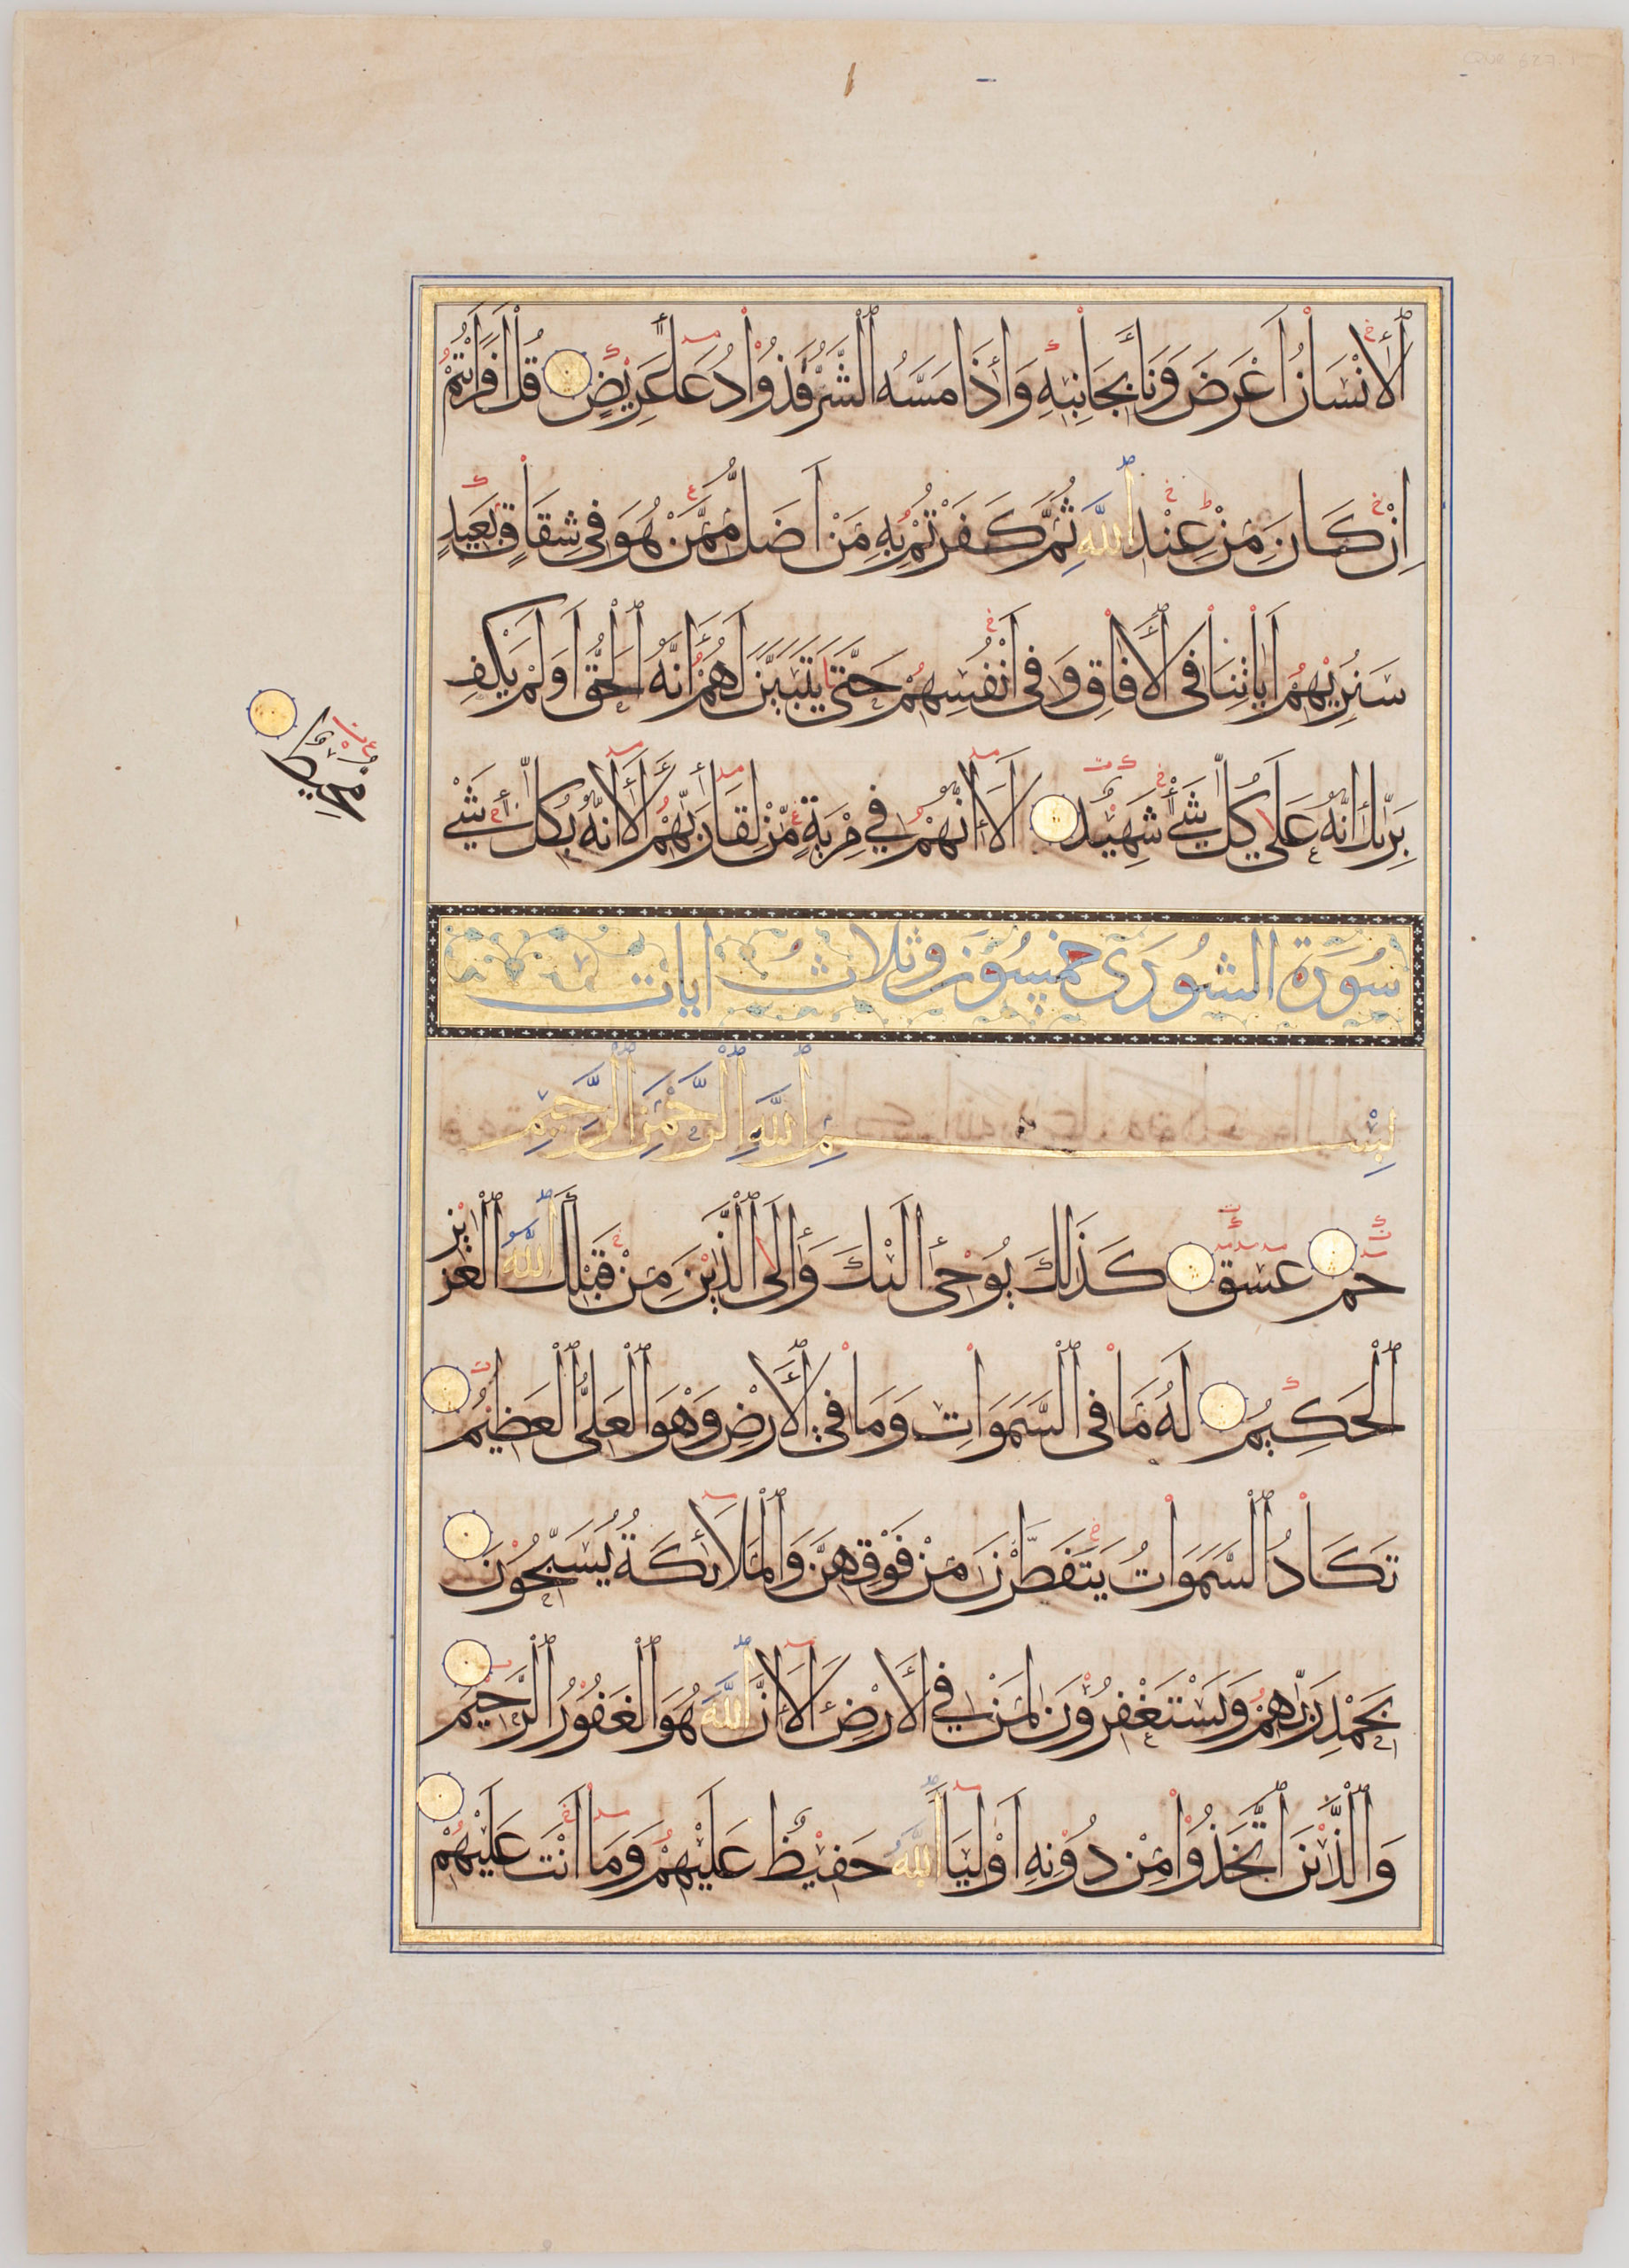 الانسان اعرض ونا بجانبه واذا مسه الشر فذو دعا عريض قل ارايتم
ان كان من عند الله ثم كفرتم به من اضل ممن هو في شقاق بعيد
سنريهم اياتنا في الافاق وفي انفسهم حتى يتبين لهم انه الحق اولم يكف
بربك انه على كل شيء شهيد الا انهم في مرية من لقا ربهم الا انه بكل شيء
محيط
سورة الشورى خمسون وثلاث ايات
بسم الله الرحمن الرحيم
حم عسق كذلك يوحي اليك والى الذين من قبلك الله العزيز
الحكيم له ما في السموات وما في الارض وهو العلي العظيم
تكاد السموات يتفطرن من فوقهن والملائكة يسبحون
بحمد ربهم ويستغفرون لمن في الارض الا ان الله هو الغفور الرحيم
والذين اتخذوا من دونه اوليا الله حفيظ عليهم وما انت عليهم